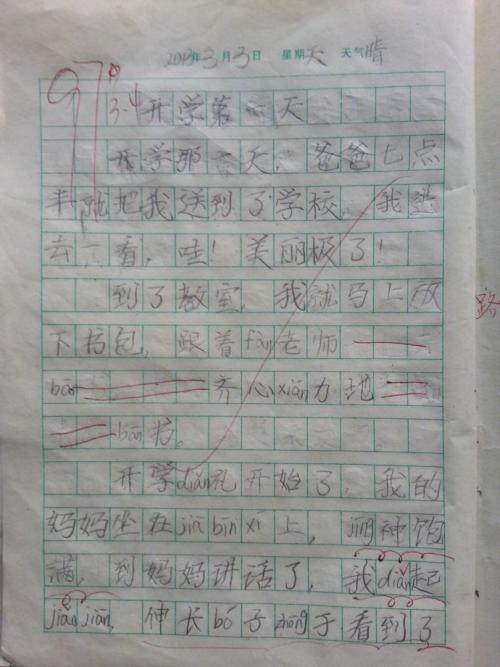 2013年3月3日 星期天 天气晴
97
3.4 开学第一天
开学那一天，爸爸七点
半就把我送到了学校。我进
去一看，哇！美丽极了！
到了教室，我就马上放
下书包，跟着fàn老师
bān 齐心xiān力地
bān书。
路
开学diǎn礼开始了，我的
妈妈坐在jiā bīn xí上，jīng神饱
满，到妈妈讲话了，我diǎn起
jiān jiān，伸长bó子zhōng于看到了